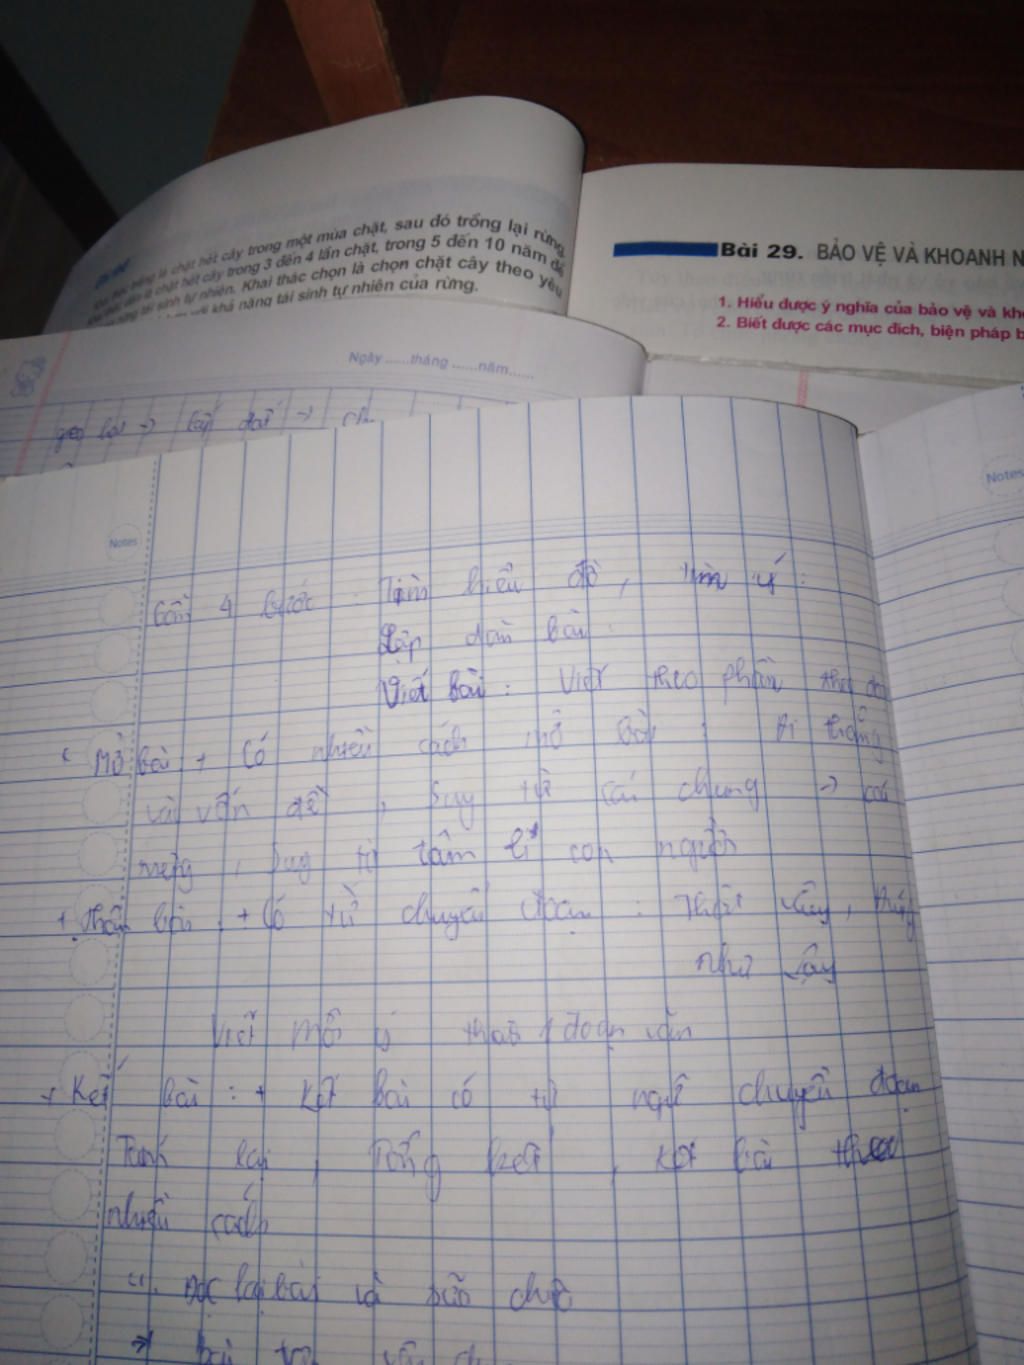 khai thác chọn là chặt hết cây trong một mùa chặt, sau đó trồng lại rừng.
là chặt hết cây trong 3 đến 4 lần chặt, trong 5 đến 10 năm để
rừng tái sinh tự nhiên. Khai thác chọn là chọn chặt cây theo yêu
khả năng tái sinh tự nhiên của rừng.
Bài 29. BẢO VỆ VÀ KHOANH N
1. Hiểu được ý nghĩa của bảo vệ và kho
2. Biết được các mục đích, biện pháp b
Ngày ......tháng ......năm......
Notes
Notes
Gồm 4 bước : Tìm hiểu đề, tìm ý :
Lập dàn bài
Viết bài : Viết theo phần
Mở bài : + Có nhiều cách mở bài : Đi thẳng
vào vấn đề, suy từ cái chung → cái
riêng, suy từ tâm lí con người
+ Thân bài : + Có từ chuyển đoạn : Thật vậy,
như vậy
Viết mỗi ý thành 1 đoạn văn
+ Kết bài : + Kết bài có từ ngữ chuyển đoạn
Tóm lại, Tổng kết, kết bài theo
nhiều cách
Đọc lại bài và sửa chữa